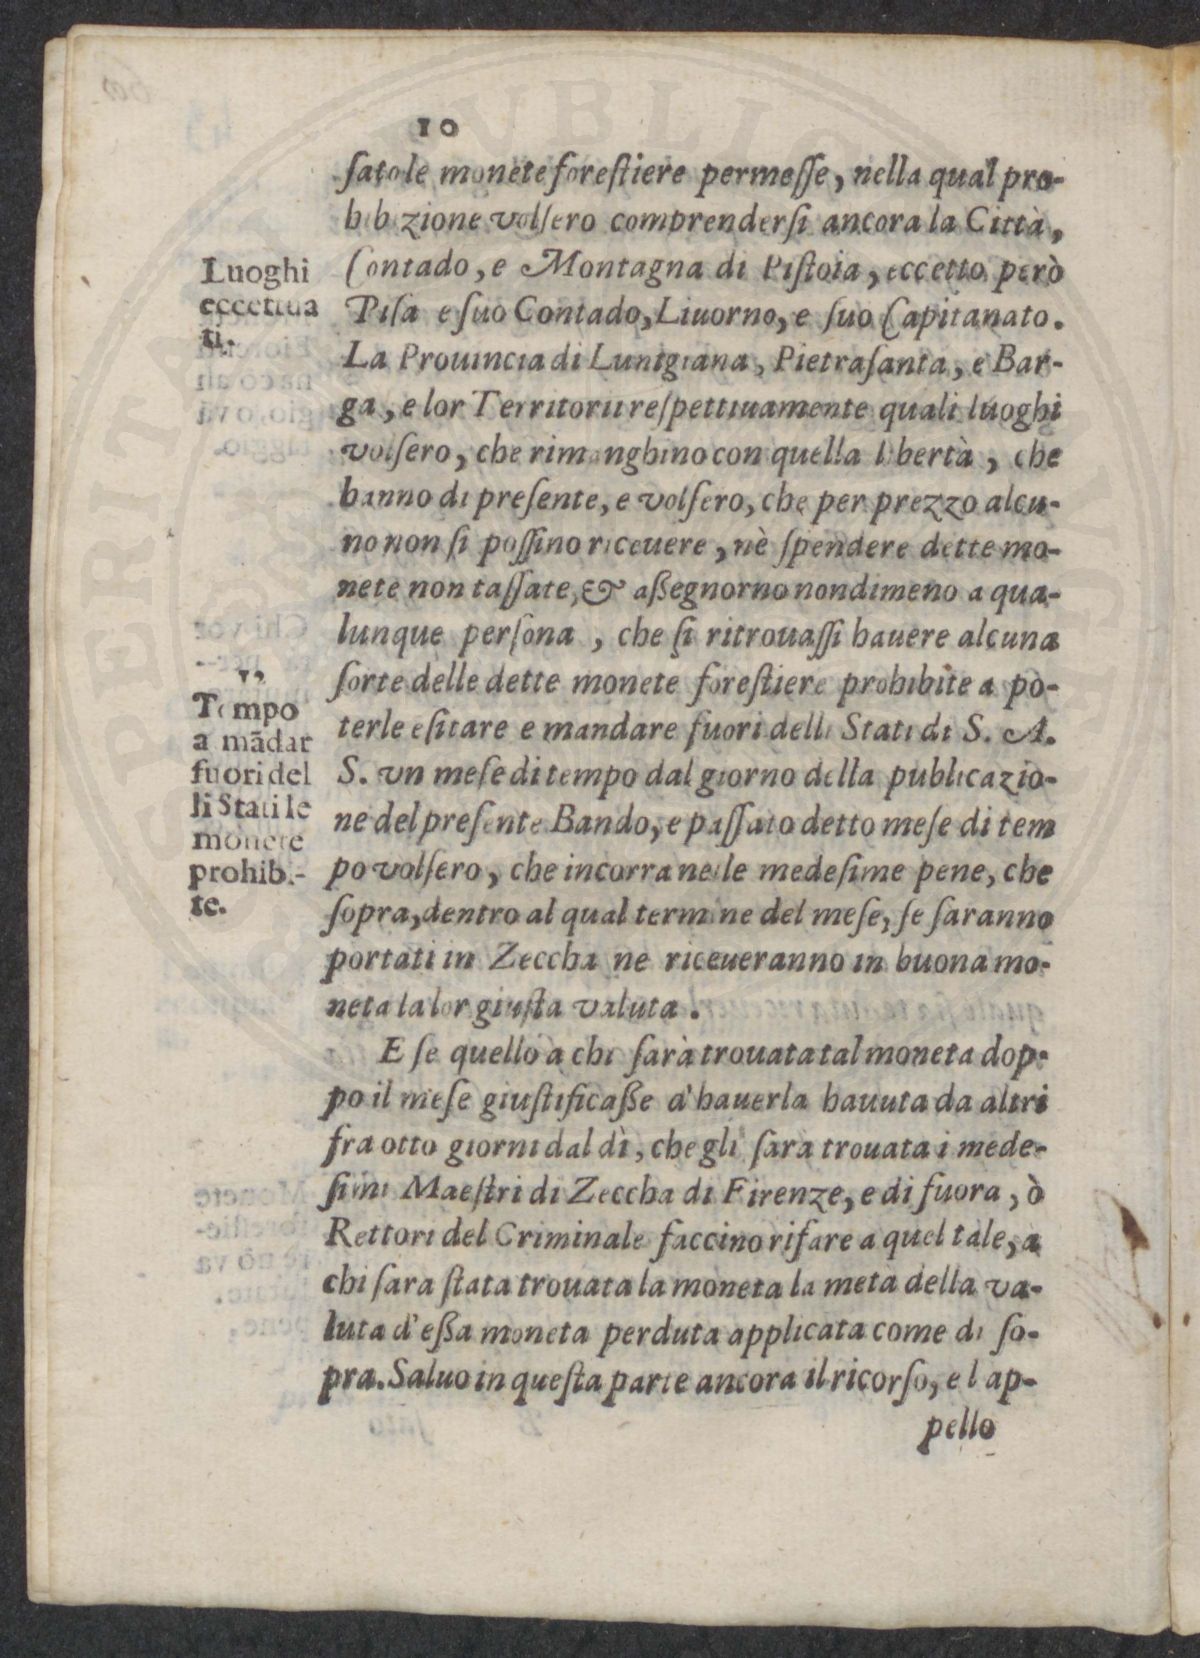 10
ſato le monete foreſtiere permeſſe, nella qual pro-
hibizione volſero comprenderſi ancora la Città,
Contado, e Montagna di Piſtoia, eccetto però
Piſa e ſuo Contado, Liuorno, e ſuo Capitanato.
La Prouincia di Lunigiana, Pietraſanta, e Bar-
ga, e lor Territorii reſpettiuamente quali luoghi
volſero, che rimanghino con quella libertà, che
hanno di preſente, e volſero, che per prezzo alcu-
no non ſi poſſino riceuere, nè ſpendere dette mo-
nete non taſſate, & aßegnorno nondimeno a qua-
lunque perſona, che ſi ritrouaſſi hauere alcuna
ſorte delle dette monete foreſtiere prohibite a po-
terle eſitare e mandare fuori delli Stati di S. A.
S. vn meſe di tempo dal giorno della publicazio-
ne del preſente Bando, e paſſato detto meſe di tem
po volſero, che incorra nelle medeſime pene, che
ſopra, dentro al qual termine del meſe, ſe ſaranno
portati in Zeccha ne riceueranno in buona mo-
neta la lor giuſta valuta.
E ſe quello a chi ſarà trouata tal moneta dop-
po il meſe giuſtificaße d'hauerla hauuta da altri
fra otto giorni dal dì, che gli ſara trouata i mede-
ſimi Maeſtri di Zeccha di Firenze, e di fuora, ò
Rettori del Criminale faccino rifare a quel tale, a
chi ſara ſtata trouata la moneta la meta della va-
luta d'eßa moneta perduta applicata come di ſo-
pra. Saluo in queſta parte ancora il ricorſo, e l ap-
pello
Luoghi
eccettua
ti.
Tempo
a mādar
fuori del
li Stati le
monete
prohibi-
te.